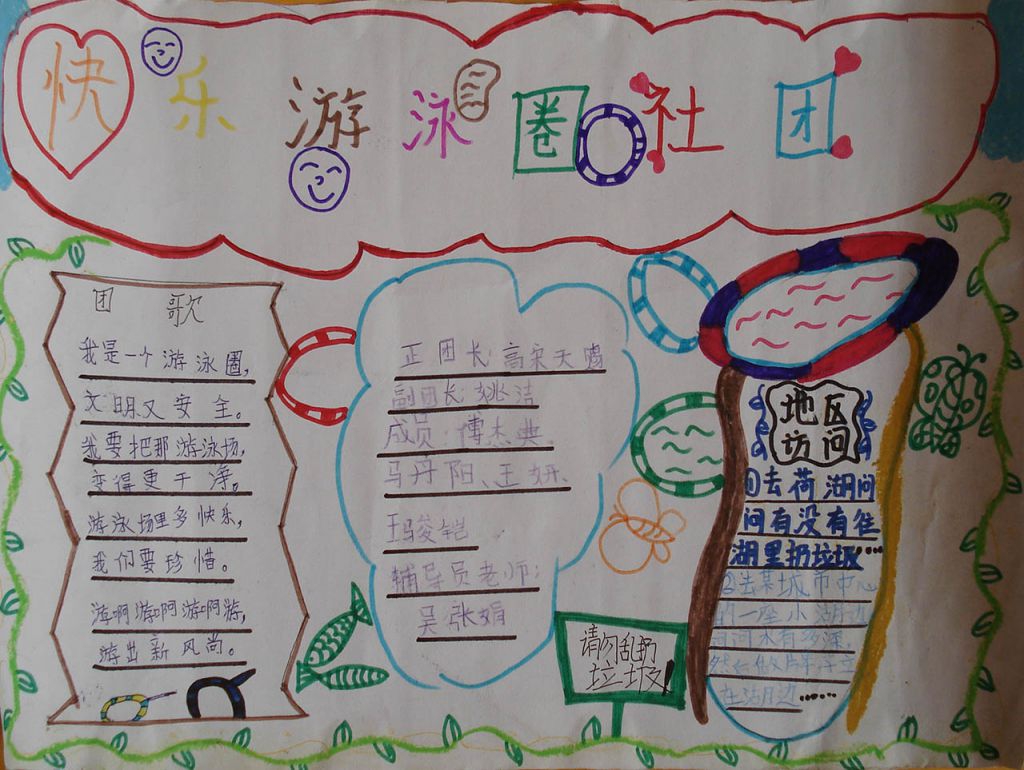 快乐游泳圈社团
团歌
我是一个游泳圈,
文明又安全。
我要把那游泳场,
变得更干净。
游泳场里多快乐,
我们要珍惜。
游啊游啊游啊游,
游出新风尚。
正团长:高
副团长:姚洁
成员:傅杰典、
马丹阳、王妍、
王骏铠
辅导员老师:
吴张娟
请勿乱扔
垃圾!
地区
访问
①去荷湖问
问有没有往
湖里扔垃圾……
②去某城市中心
的一座小湖边
问问水有多深,
然后做牌子立
在湖边……